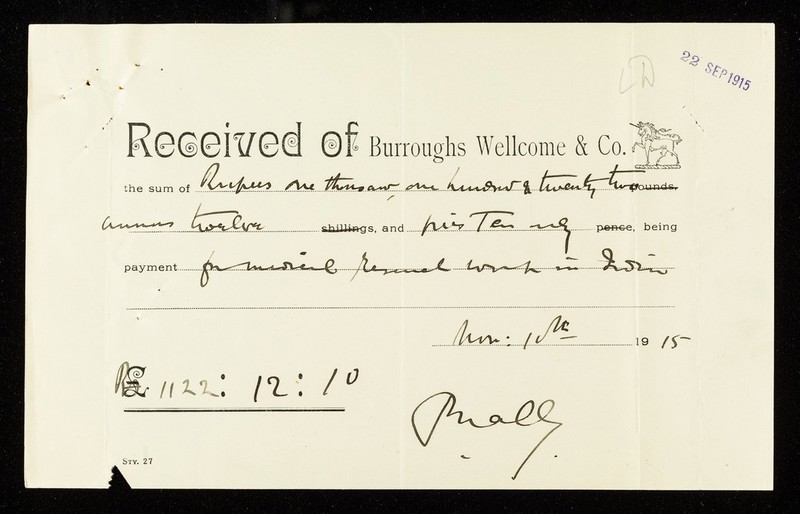 22 SEP 1915
Received of Burroughs Wellcome & Co.
the sum of Rupees one thousand one hundred & twenty two pounds.
annas twelve shillings, and pies Ten only pence, being
payment for medical research work in India
Nov: 10th 1915
Rs. £ 1122: 12: 10
STY. 27